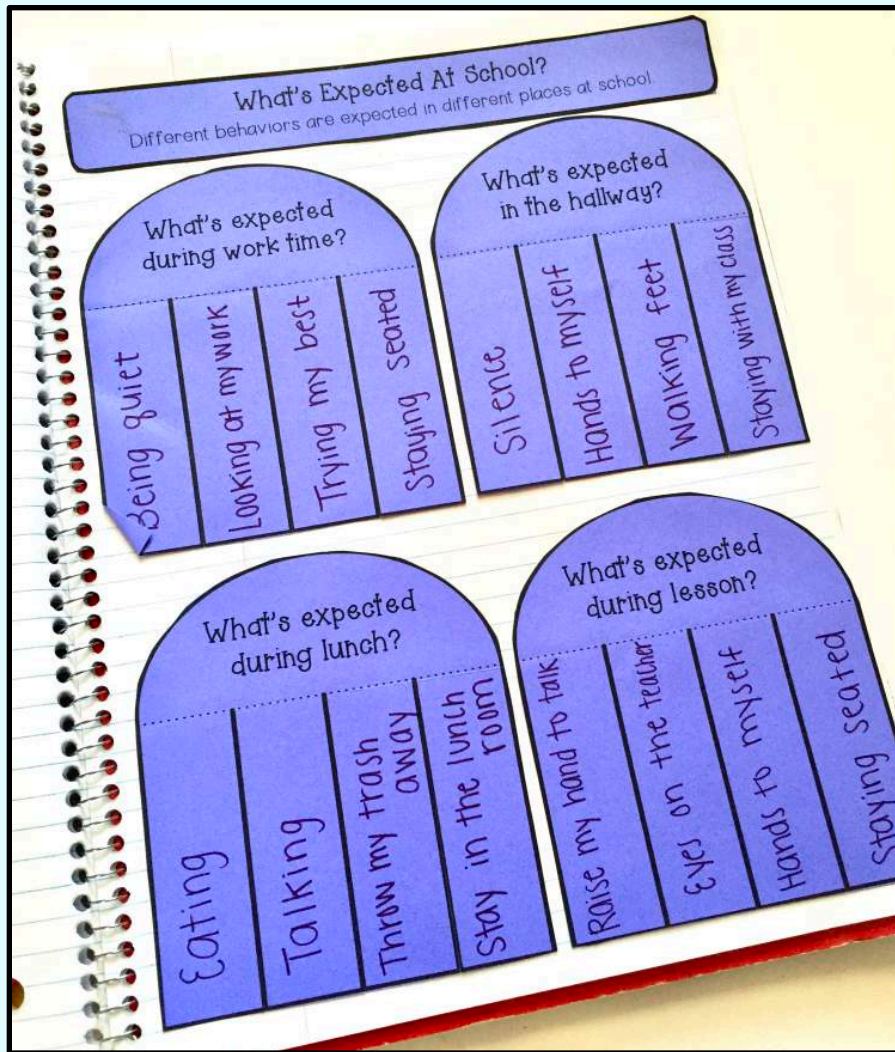 What's Expected At School?
Different behaviors are expected in different places at school
What's expected
during work time?
Being quiet
Looking at my work
Trying my best
Staying seated
What's expected
in the hallway?
Silence
Hands to myself
Walking feet
Staying with my class
What's expected
during lunch?
Eating
Talking
Throw my trash
away
Stay in the lunch
room
What's expected
during lesson?
Raise my hand to talk
Eyes on the teacher
Hands to myself
Staying seated